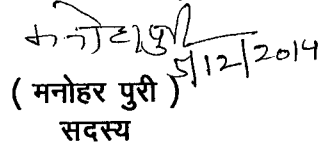 मनोहर पुरी
5/12/2014
( मनोहर पुरी )
सदस्य